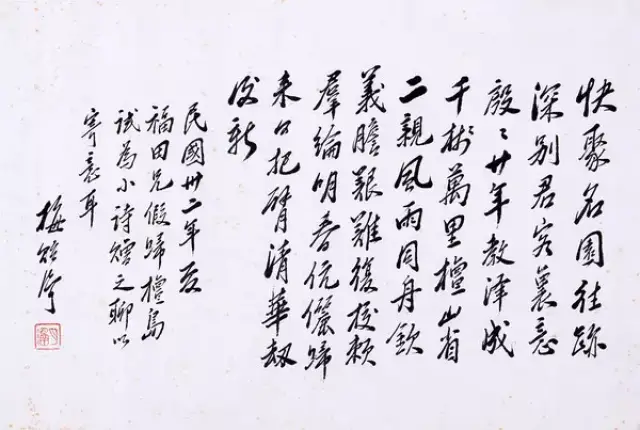 快聚名園往跡
深別君客裏意
殷〻廿年教澤成
千樹萬里檀山省
二親風雨同舟欽
義膽艱難復校賴
羣綸明春伉儷歸
来日把臂清華劫
後新
民國卅二年夏
福田兄假歸檀島
試為小詩贈之聊以
寄意耳
梅貽琦